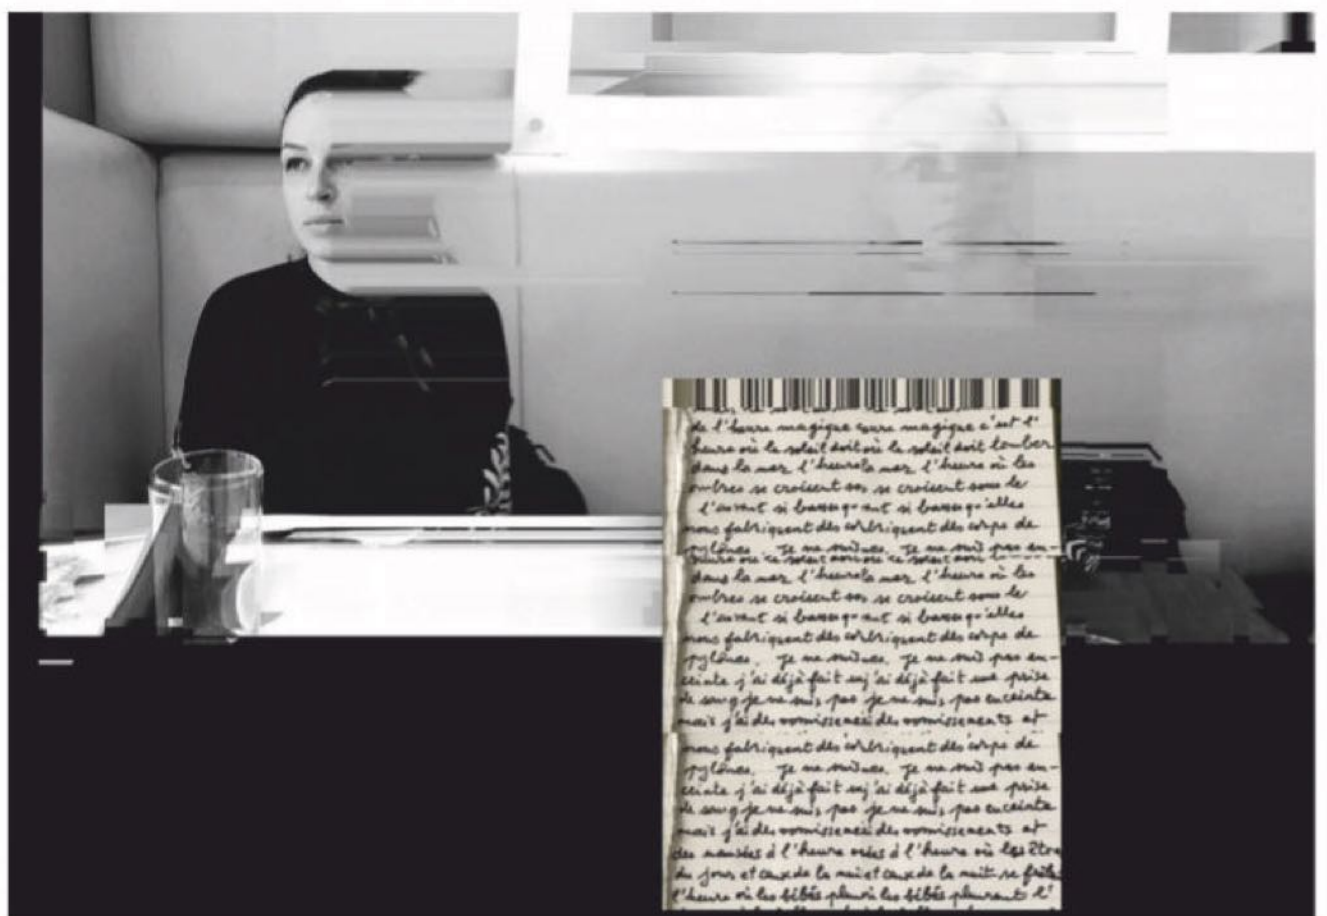 de l'heure magique eure magique c'est l'
heure où le soleil doit où le soleil doit tomber
dans la mer l'heure la mer l'heure où les
ombres se croisent se croisent sous le
si basses qu' ant si basses qu'elles
nous fabriquent des briquent des corps de
pylônes. Je ne nes. Je ne suis pas en-
dans la mer l'heure la mer l'heure où les
ombres se croisent se croisent sous le
si basses qu' ant si basses qu'elles
nous fabriquent des briquent des corps de
pylônes. Je ne nes. Je ne suis pas en-
ceinte j'ai déjà fait un j'ai déjà fait une prise
de sang je ne suis pas je ne suis pas enceinte
mais j'ai des vomissemen des vomissements et
nous fabriquent des briquent des corps de
pylônes. Je ne nes. Je ne suis pas en-
ceinte j'ai déjà fait un j'ai déjà fait une prise
de sang je ne suis pas je ne suis pas enceinte
mais j'ai des vomissemen des vomissements et
des nausées à l'heure ées à l'heure où les être
du jour et ceux de la nui et ceux de la nuit se
l'heure où les bébés pleu où les bébés pleurent l'